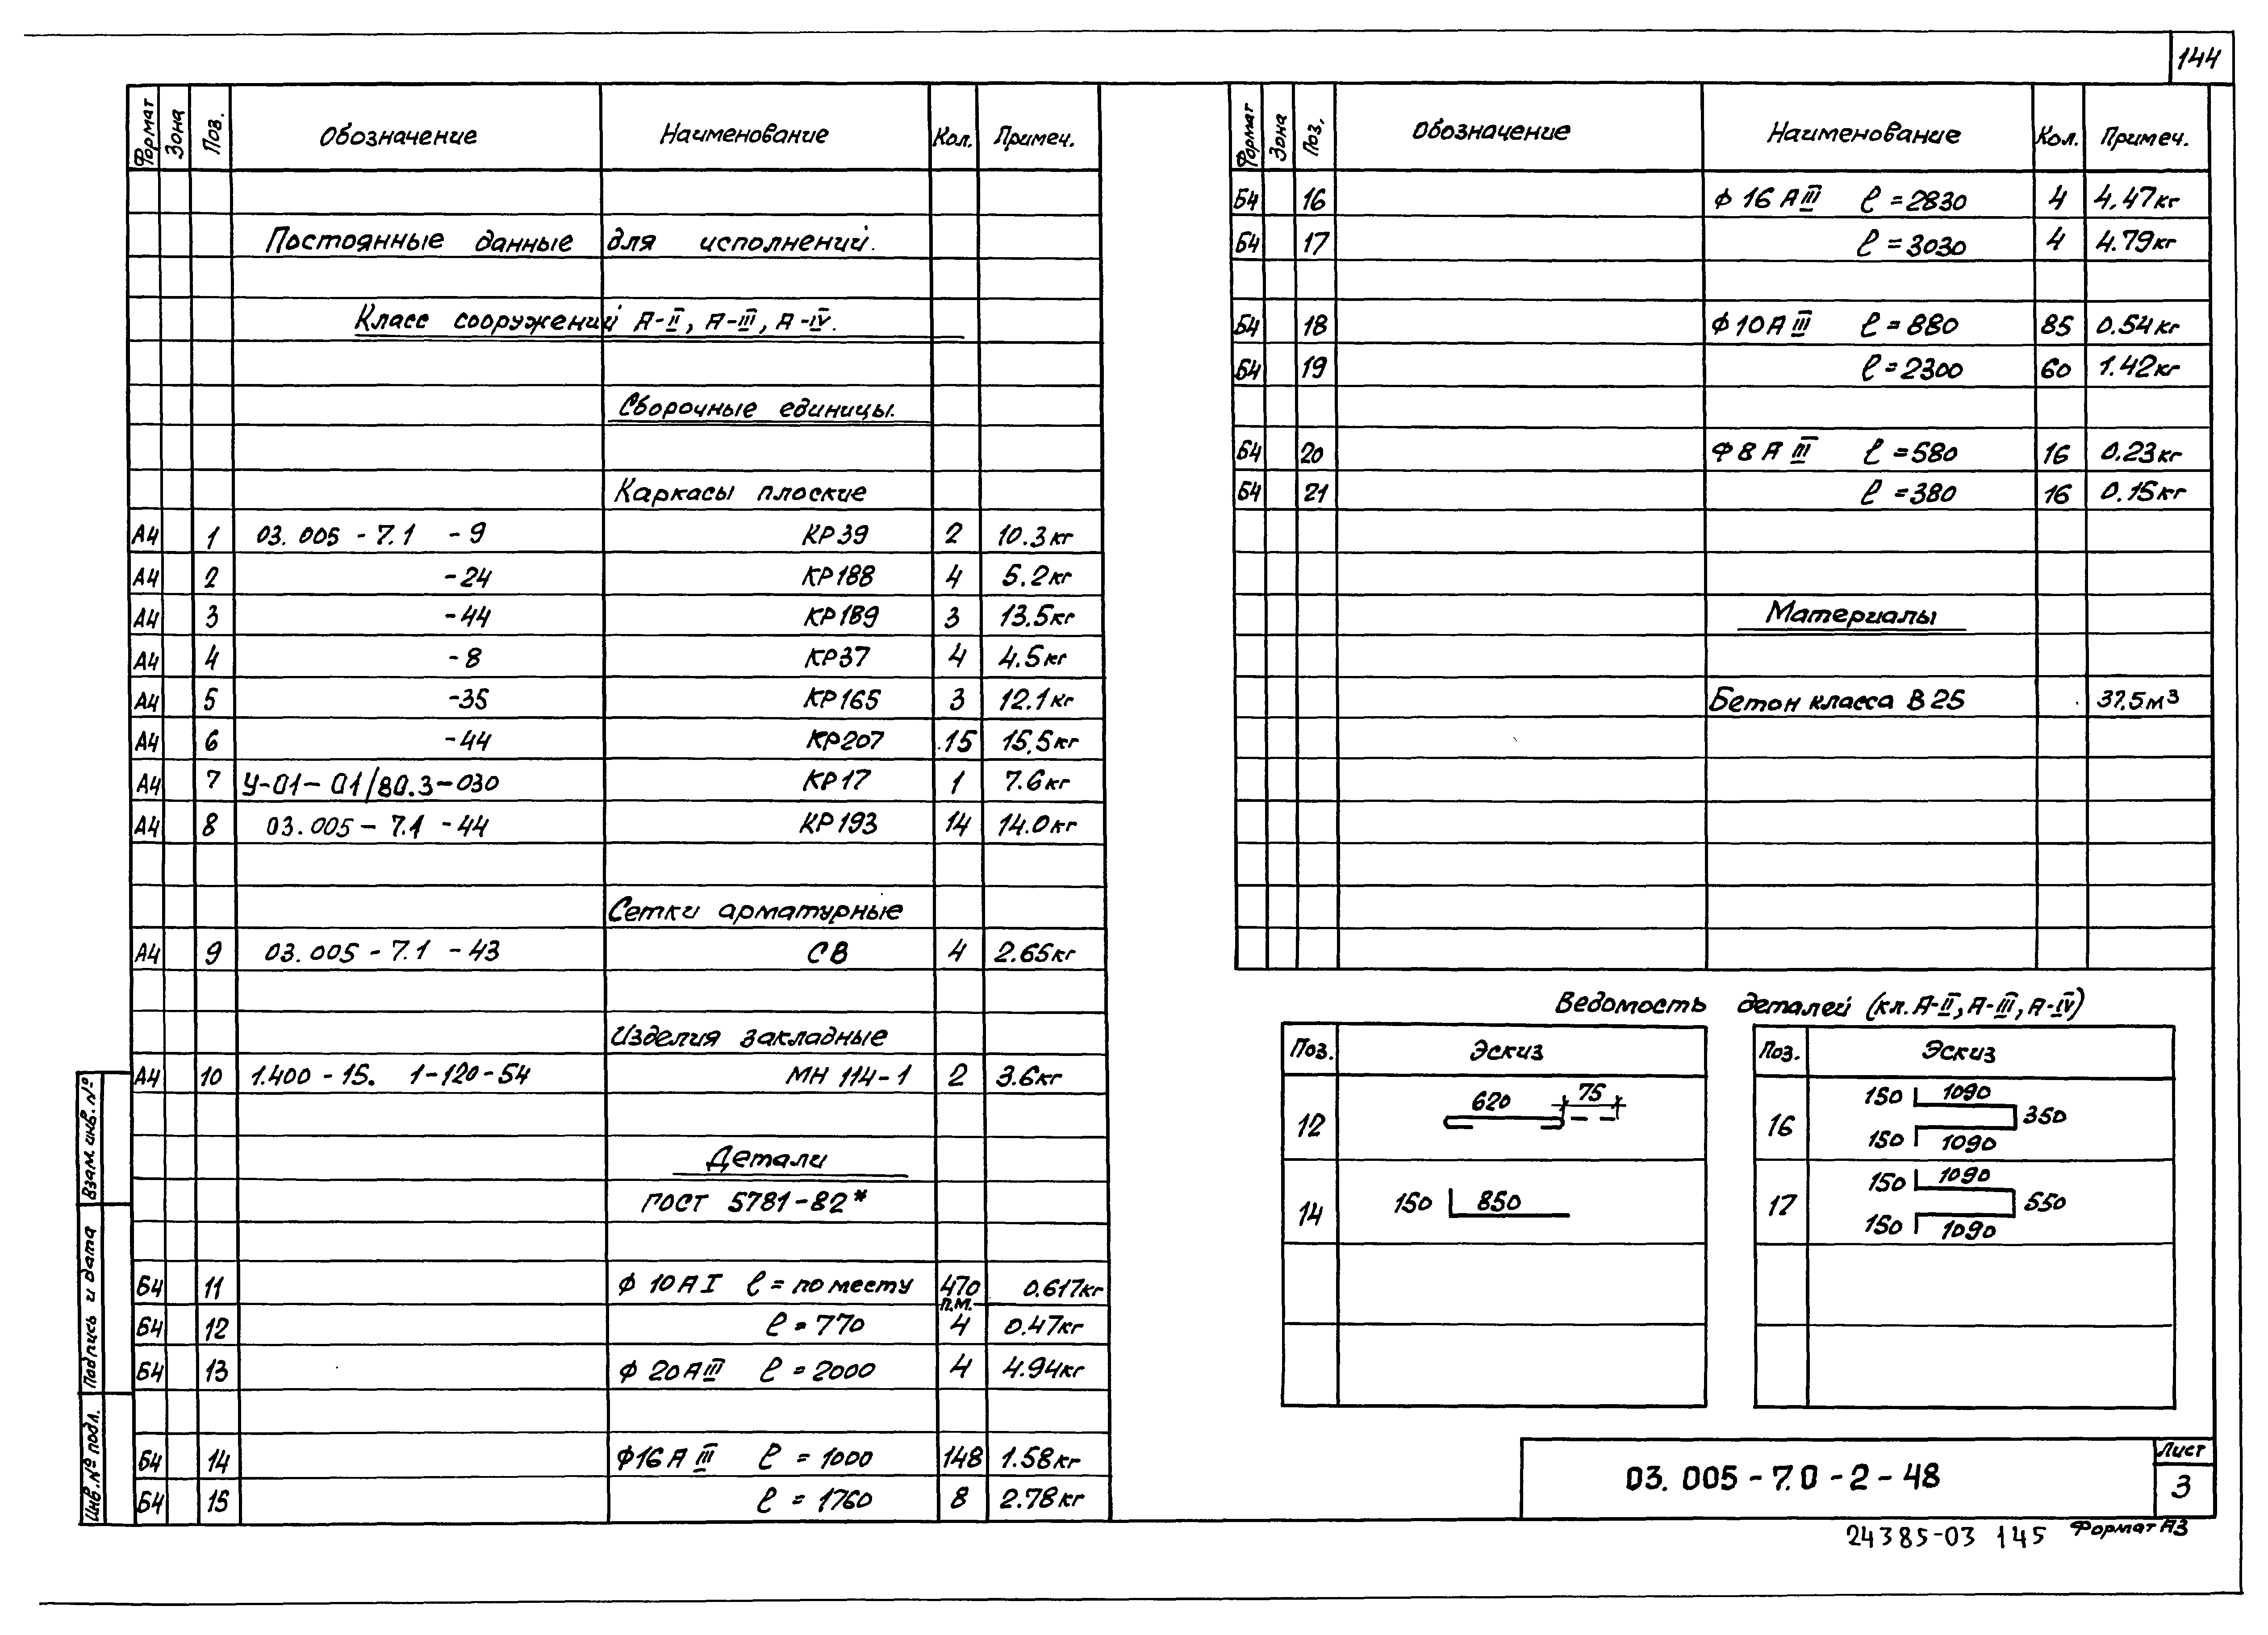 144
Формат Зона Поз. Обозначение Наименование Кол. Примеч.
Постоянные данные для исполнений.
Класс сооружений А-II, А-III, А-IV.
Сборочные единицы.
Каркасы плоские
А4 1 03.005-7.1 -9 КР39 2 10.3кг
А4 2 -24 КР188 4 5.2кг
А4 3 -44 КР189 3 13.5кг
А4 4 -8 КР37 4 4.5кг
А4 5 -35 КР165 3 12.1кг
А4 6 -44 КР207 15 15.5кг
А4 7 У-01-01/80.3-030 КР17 1 7.6кг
А4 8 03.005-7.1 -44 КР193 14 14.0кг
Сетки арматурные
А4 9 03.005-7.1 -43 СВ 4 2.65кг
Изделия закладные
А4 10 1.400-15. 1-120-54 МН 114-1 2 3.6кг
Детали
ГОСТ 5781-82*
Б4 11 ϕ 10АI ℓ = по месту 470 п.м. 0.617кг
Б4 12 ℓ = 770 4 0.47кг
Б4 13 ϕ 20АIII ℓ = 2000 4 4.94кг
Б4 14 ϕ16АIII ℓ = 1000 148 1.58кг
Б4 15 ℓ = 1760 8 2.78кг
Формат Зона Поз. Обозначение Наименование Кол. Примеч.
Б4 16 ϕ 16АIII ℓ = 2830 4 4.47кг
Б4 17 ℓ = 3030 4 4.79кг
Б4 18 ϕ10АIII ℓ = 880 85 0.54кг
Б4 19 ℓ = 2300 60 1.42кг
Б4 20 ϕ8АIII ℓ = 580 16 0.23кг
Б4 21 ℓ = 380 16 0.15кг
Материалы
Бетон класса В25 37.5м³
Ведомость деталей (кл. А-II, А-III, А-IV)
Поз. Эскиз
12 620 75
14 150 850
Поз. Эскиз
16 150 1090 350
150 1090
17 150 1090 550
150 1090
03.005-7.0-2-48
Лист
3
24385-03 145 Формат А3
Взам. инв. №
Подпись и дата
Инв. № подл.